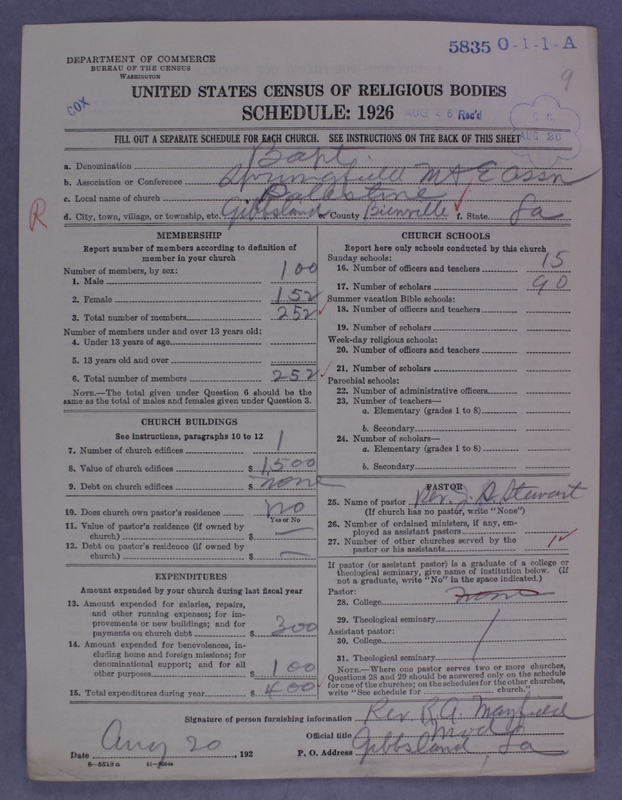 5835 0-1-1-A
DEPARTMENT OF COMMERCE
BUREAU OF THE CENSUS
WASHINGTON
9
COX
UNITED STATES CENSUS OF RELIGIOUS BODIES
SCHEDULE: 1926
AUG 26 Rec'd
AUG 26
FILL OUT A SEPARATE SCHEDULE FOR EACH CHURCH. SEE INSTRUCTIONS ON THE BACK OF THIS SHEET
a. Denomination Bapt.
b. Association or Conference Springfield M & E Assn
c. Local name of church Palestine
R
d. City, town, village, or township, etc. Gibbsland e. County Bienville f. State La
MEMBERSHIP
Report number of members according to definition of
member in your church
Number of members, by sex:
1. Male 100
2. Female 152
3. Total number of members 252
Number of members under and over 13 years old:
4. Under 13 years of age
5. 13 years old and over
6. Total number of members 252
NOTE.—The total given under Question 6 should be the
same as the total of males and females given under Question 3.
CHURCH BUILDINGS
See instructions, paragraphs 10 to 12
7. Number of church edifices 1
8. Value of church edifices $ 1,500
9. Debt on church edifices $ none
10. Does church own pastor's residence? no
Yes or No
11. Value of pastor's residence (if owned by
church) $ —
12. Debt on pastor's residence (if owned by
church) $ —
EXPENDITURES
Amount expended by your church during last fiscal year
13. Amount expended for salaries, repairs,
and other running expenses; for im-
provements or new buildings; and for
payments on church debt $ 300
14. Amount expended for benevolences, in-
cluding home and foreign missions; for
denominational support; and for all
other purposes $ 100
15. Total expenditures during year $ 400
CHURCH SCHOOLS
Report here only schools conducted by this church
Sunday schools:
16. Number of officers and teachers 15
17. Number of scholars 90
Summer vacation Bible schools:
18. Number of officers and teachers
19. Number of scholars
Week-day religious schools:
20. Number of officers and teachers
21. Number of scholars
Parochial schools:
22. Number of administrative officers
23. Number of teachers—
a. Elementary (grades 1 to 8)
b. Secondary
24. Number of scholars—
a. Elementary (grades 1 to 8)
b. Secondary
PASTOR
25. Name of pastor Rev. J. D. Stewart
(If church has no pastor, write "None")
26. Number of ordained ministers, if any, em-
ployed as assistant pastors
27. Number of other churches served by the
pastor or his assistants 1
If pastor (or assistant pastor) is a graduate of a college or
theological seminary, give name of institution below. (If
not a graduate, write "No" in the space indicated.)
Pastor:
28. College none
29. Theological seminary
Assistant pastor:
30. College
31. Theological seminary
NOTE.—Where one pastor serves two or more churches,
Questions 28 and 29 should be answered only on the schedule
for one of the churches; on the schedules for the other churches,
write "See schedule for church."
Signature of person furnishing information Rev. R. A. Mayfield
Official title Mod
Date Aug 20, 192 P. O. Address Gibbsland, La